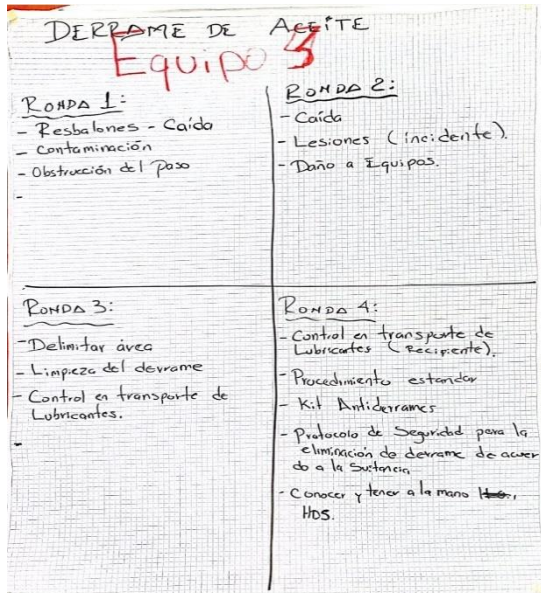 DERRAME DE ACEITE
Equipo 3
RONDA 1:
- Resbalones - Caída
- Contaminación
- Obstrucción del paso
-
RONDA 2:
- Caída
- Lesiones (incidente).
- Daño a Equipos.
RONDA 3:
- Delimitar área
- Limpieza del derrame
- Control en transporte de
Lubricantes.
-
RONDA 4:
- Control en transporte de
Lubricantes (Recipiente).
- Procedimiento estandar
- Kit Antiderrames
- Protocolo de Seguridad para la
eliminación de derrame de acuer
do a la Sustancia
- Conocer y tener a la mano
HDS.